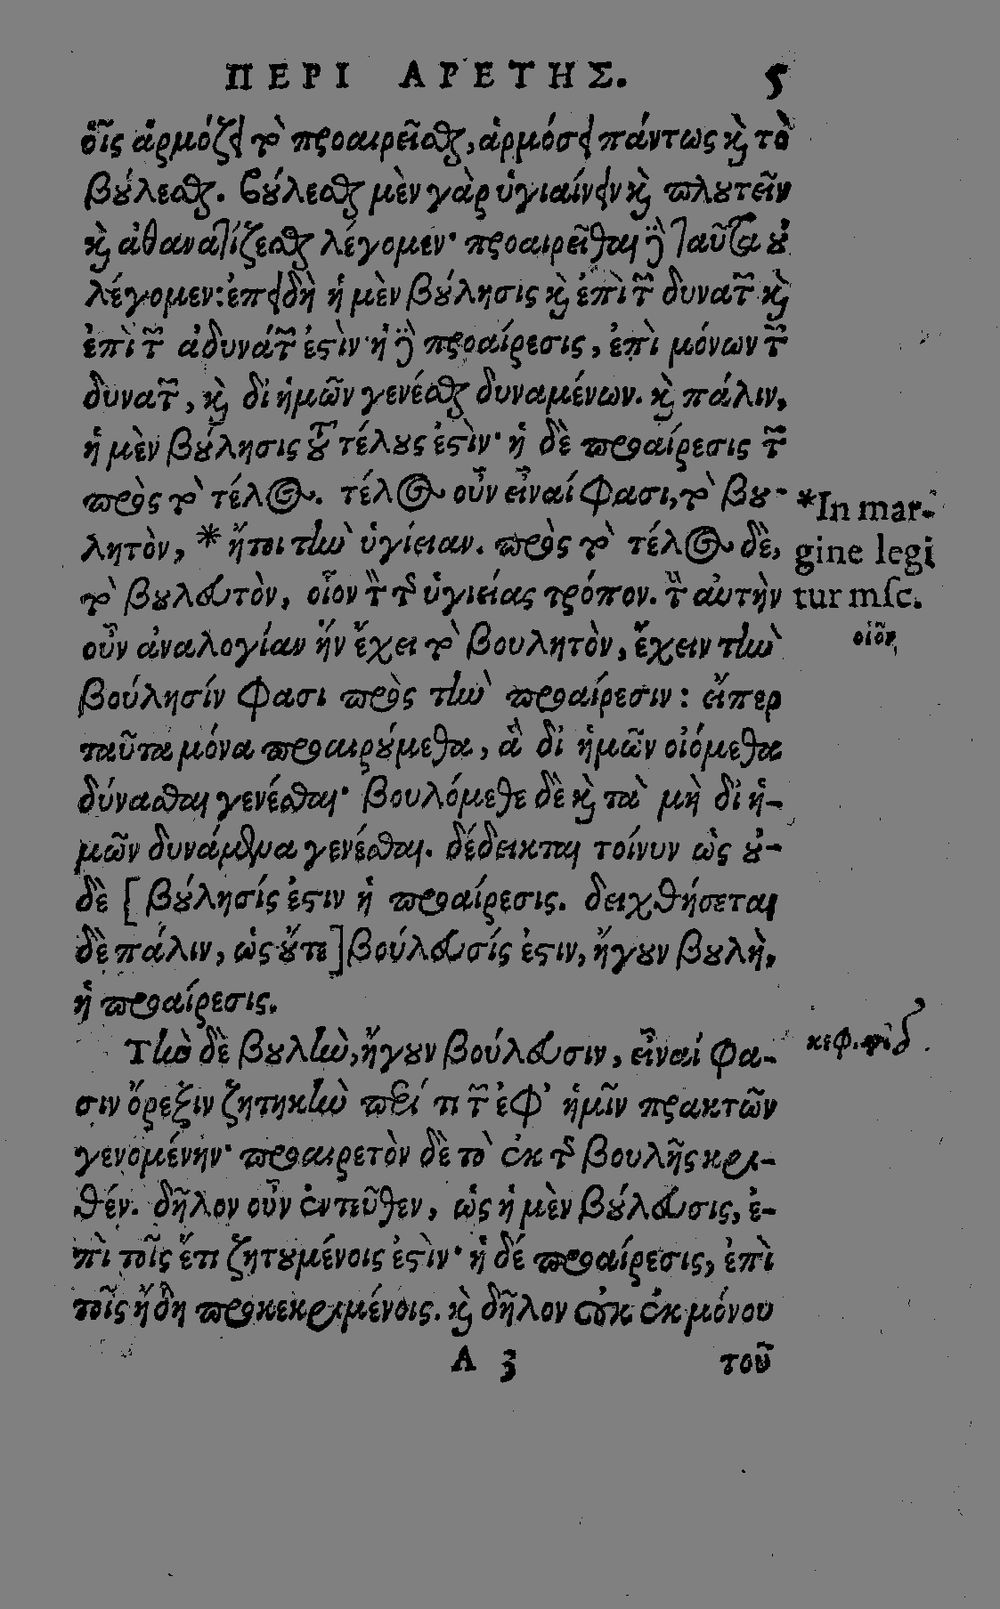 ΠΕΡΙ ΑΡΕΤΗΣ. 5
οἷς ἁρμόζει τὸ προαιρεῖσθαι, ἁρμόσει πάντως καὶ τὸ
βούλεσθαι. βούλεσθαι μὲν γὰρ ὑγιαίνειν καὶ πλουτεῖν
καὶ ἀθανατίζεσθαι λέγομεν· προαιρεῖσθαι δὲ ταῦτα οὐ
λέγομεν: ἐπειδὴ ἡ μὲν βούλησις καὶ ἐπὶ τῶν δυνατῶν καὶ
ἐπὶ τῶν ἀδυνάτων ἐστὶν· ἡ δὲ προαίρεσις, ἐπὶ μόνων τῶν
δυνατῶν, καὶ δι ἡμῶν γενέσθαι δυναμένων. καὶ πάλιν,
ἡ μὲν βούλησις τοῦ τέλους ἐστὶν· ἡ δὲ προαίρεσις τῶν
πρὸς τὸ τέλος. τέλος οὖν εἶναί φασι, τὸ βου-
λητὸν, * ἤτοι τὴν ὑγίειαν. πρὸς τὸ τέλος δὲ,
τὸ βουλευτὸν, οἷον τὸν τῆς ὑγιείας τρόπον. τὴν αὐτὴν
οὖν ἀναλογίαν ἥν ἔχει τὸ βουλητὸν, ἔχειν τὴν
βούλησίν φασι πρὸς τὴν προαίρεσιν: εἴπερ
ταῦτα μόνα προαιρούμεθα, ἃ δι ἡμῶν οἰόμεθα
δύνασθαι γενέσθαι· βουλόμεθε δὲ καὶ τὰ μὴ δι ἡ-
μῶν δυνάμενα γενέσθαι. δέδεικται τοίνυν ὡς οὐ-
δὲ [ βούλησίς ἐστιν ἡ προαίρεσις. δειχθήσεται
δὲ πάλιν, ὡς οὔτε ] βούλευσίς ἐστιν, ἤγουν βουλὴ,
ἡ προαίρεσις.
Τὴν δὲ βουλὴν, ἤγουν βούλευσιν, εἶναί φα-
σιν ὄρεξιν ζητητικὴν περί τι τῶν ἐφ' ἡμῖν πρακτῶν
γενομένην· προαιρετὸν δὲ τὸ ἐκ τῆς βουλῆς κρι-
θέν. δῆλον οὖν ἐντεῦθεν, ὡς ἡ μὲν βούλευσις, ἐ-
πὶ τοῖς ἔτι ζητουμένοις ἐστὶν· ἡ δέ προαίρεσις, ἐπὶ
τοῖς ἤδη προκεκριμένοις. καὶ δῆλον οὐκ ἐκ μόνου
Α 3 τοῦ
*In mar-
gine legi
tur mſc.
οἷον
κεφ.